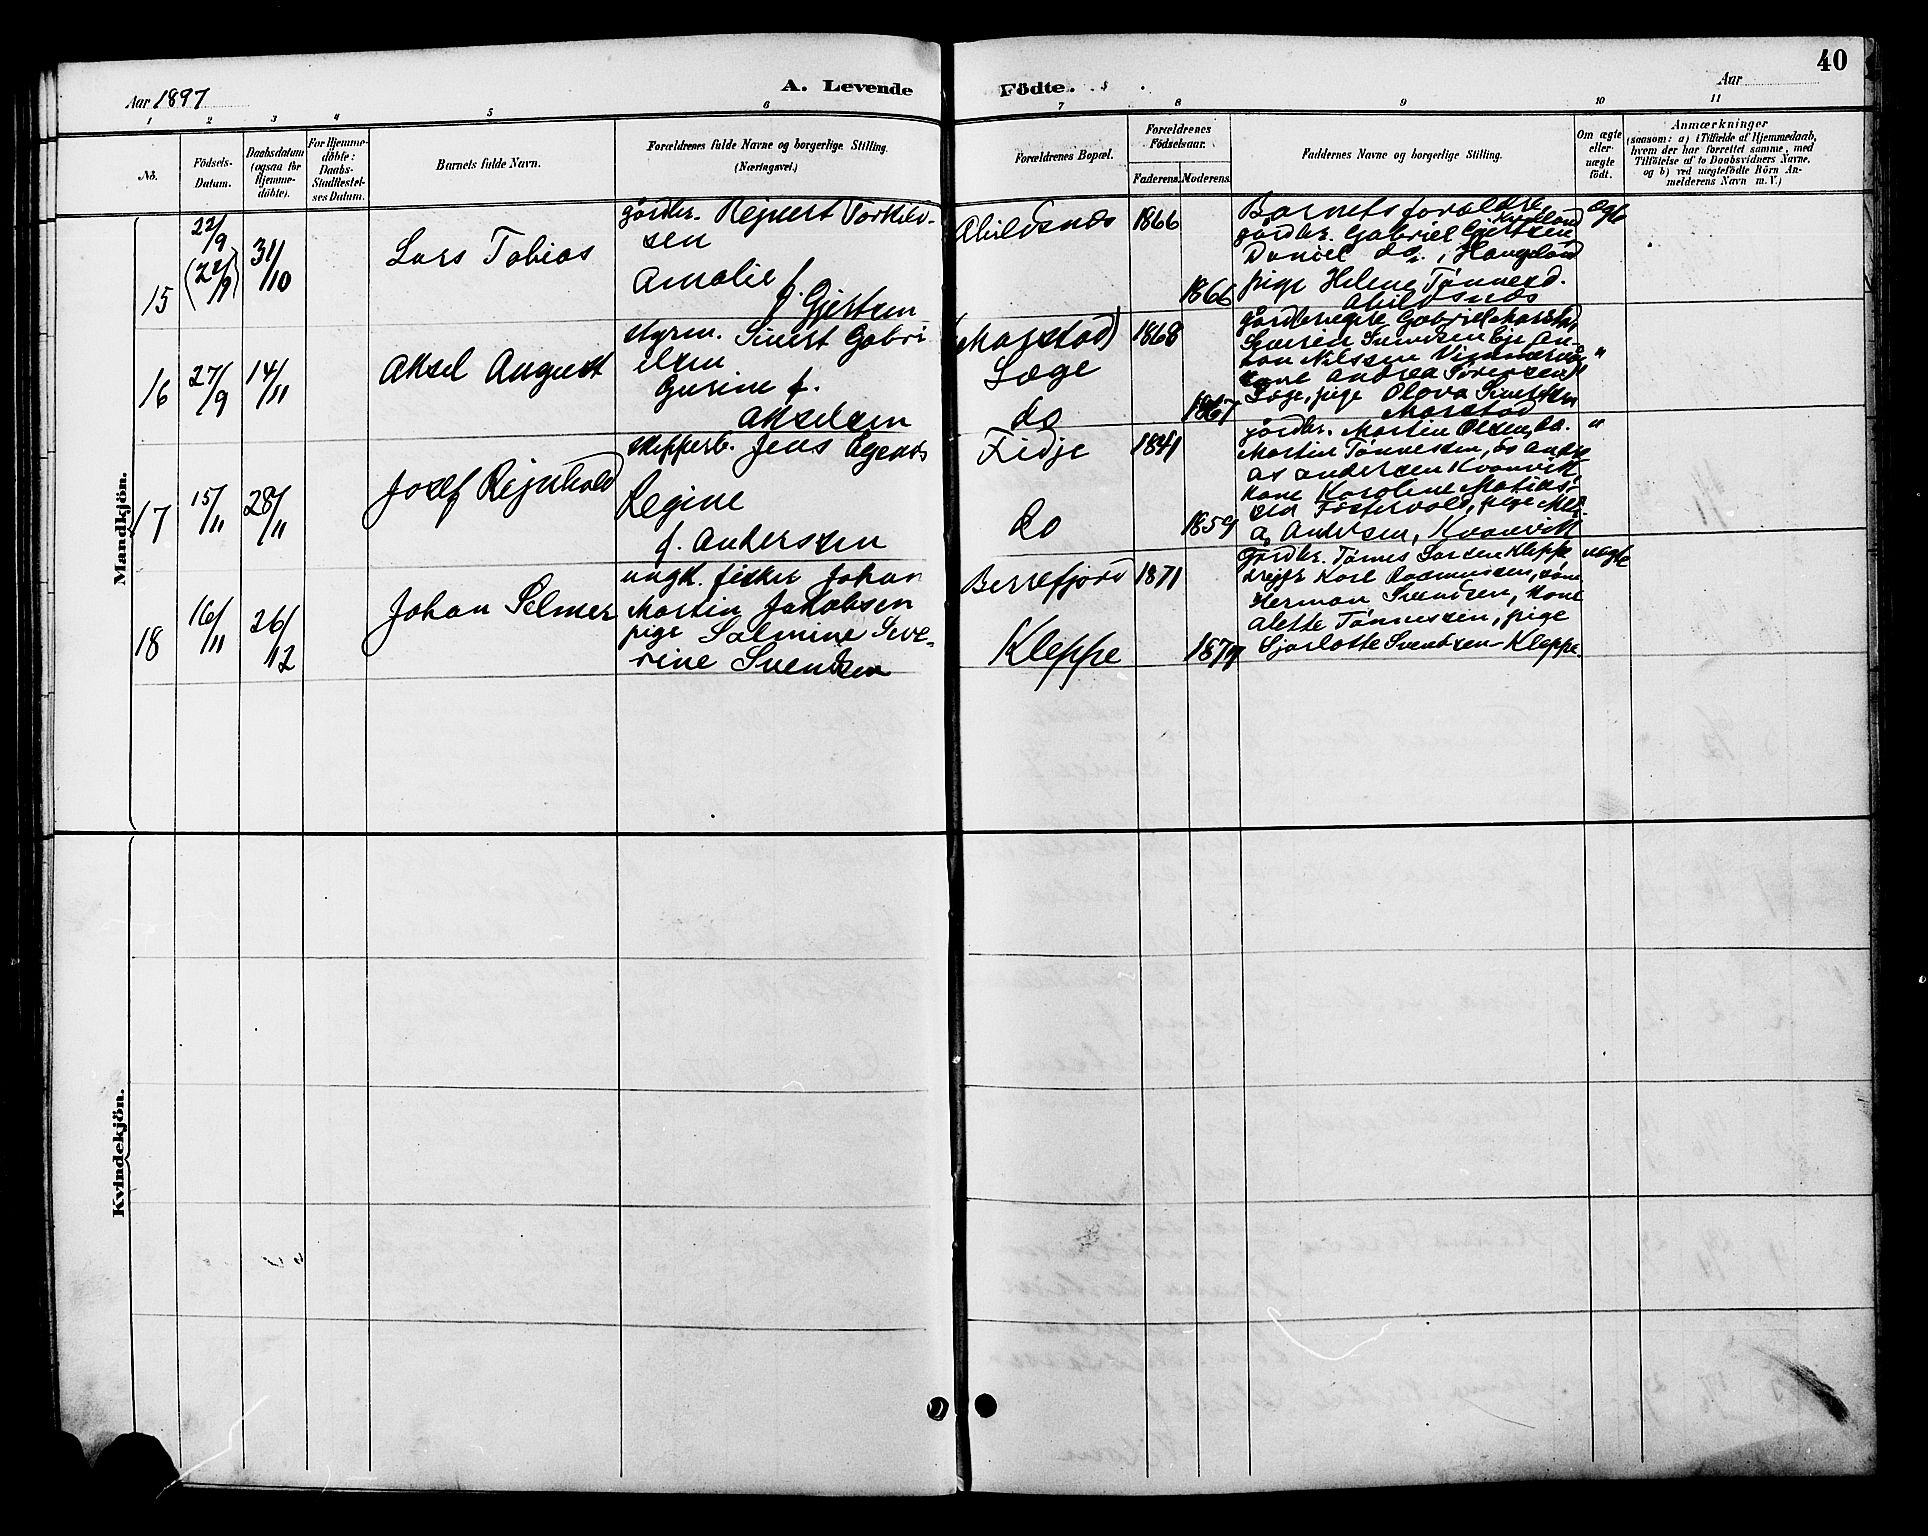 40
Aar 1897
A. Levende
Födte.
Aar
1 2 3 4 5 6 7 8 9 10 11
No.
Födsels-
Datum.
Daabsdatum
(ogsaa for
Hjemme-
döbte).
For Hjemme-
döbte:
Daabs-
Stadfæstel-
ses Datum.
Barnets fulde Navn.
Forældrenes fulde Navne og borgerlige Stilling.
(Næringsvei.)
Forældrenes Bopæl.
Forældrenes
Födselsaar.
Faderens. Moderens.
Faddernes Navne og borgerlige Stilling.
Om ægte
eller
uægte
födt.
Anmærkninger
(saasom: a) i Tilfælde af Hjemmedaab,
hvem der har forrettet samme, med
Tilföielse af to Daabsvidners Navne,
og b) ved uægtefödte Börn An-
melderens Navn m. V.)
Mandkjön.
15
22/9
(22/9)
31/10
Lars Tobias
gårdbr. Rejnert Torkild-
sen
Amalie f.
Gjertsen
Abildsnæs
1866
1866
Barnets forældre,
gårdbr. Gabriel Gjertsen,
Daniel do., Haugeland
pige Helene Tønnesd.
Abildsnæs
ægte
16
27/9
14/11
Aksel August
styrm. Sivert Gabri
elsen
Gurine f.
Akselsen
(Marstad)
Loge
do
1868
1867
gårdbrugere Gabriel Marstad,
kone Andrea Sørensen
Loge, pige Olava Sivertsen
Marstad
"
17
15/11
28/11
Josef Rejnhold
skipperb. Jens Egenes
Regine
f. Anderssen
Fidje
do
1841
1859
gårdbr. Martin Olsen, do.
Martin Tønnessen, do Andre
as Anderssen Kvanvik
kone Karoline Matias-
sen Fostervold, pige Mel.
A. Andersen, Kvanvik
"
18
16/11
26/12
Johan Selmer
ungk. fisker Johan
Martin Jakobsen
pige Salmine Seve-
rine Svendsen
Berrefjord
Kleppe
1871
1877
Gårdbr. Tønnes Larsen Kleppe
Karl Rasmussen,
Herman Svendsen, kone
Alette Tønnessen, pige
Sjarlotte Svendsen - Kleppe.
uægte
Kvindekjön.